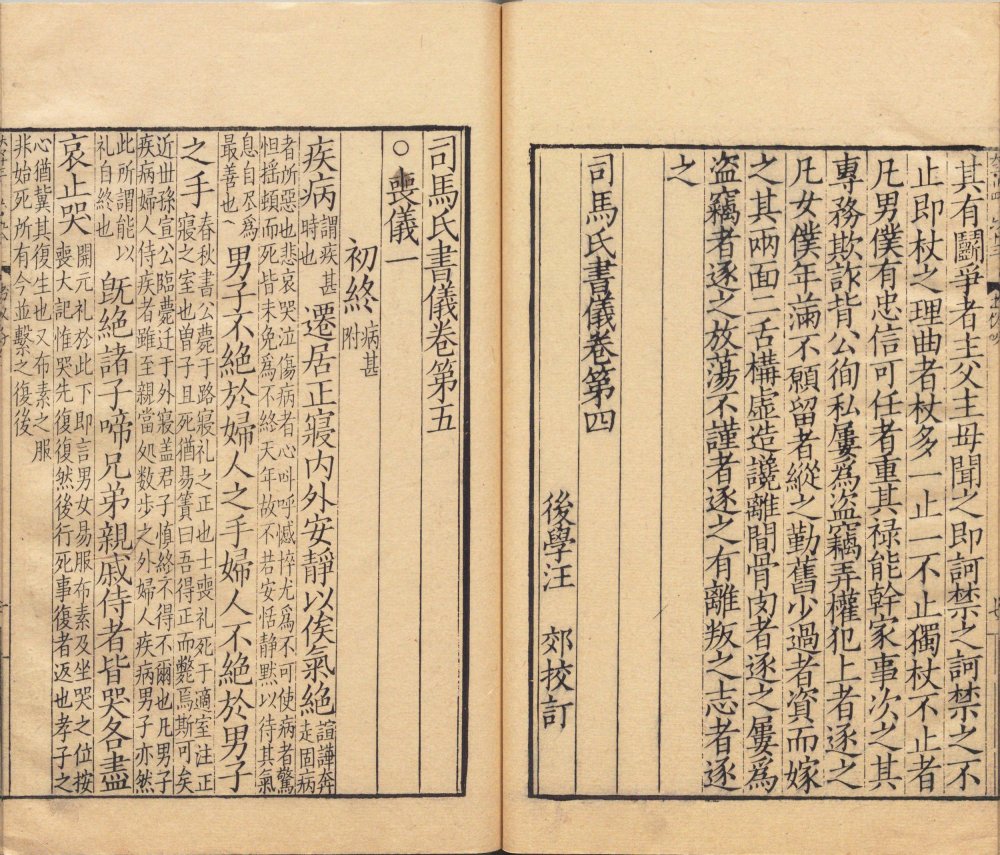 其有鬬爭者主父主母聞之即訶禁之訶禁之不
止即杖之理曲者杖多一止一不止獨杖不止者
凡男僕有忠信可任者重其禄能幹家事次之其
專務欺詐背公徇私屢為盜竊弄權犯上者逐之
凡女僕年滿不願留者縱之勤舊少過者資而嫁
之其兩面二舌構虛造讒離間骨肉者逐之屢為
盜竊者逐之放蕩不謹者逐之有離叛之志者逐
之
司馬氏書儀卷第四
後學汪 郊校訂
司馬氏書儀卷第五
○喪儀一
初終 病甚附
疾病 謂疾甚時也 遷居正寢内外安靜以俟氣絶 諠譁奔走固病
者所惡也悲哀哭泣傷病者心叫呼憾捽尤爲不可使病者驚
怛揺頓而死皆未免爲不終天年故不若安恬静默以待其氣
息自尽爲最善也 男子不絶於婦人之手婦人不絶於男子
之手 春秋書公薨于路寢礼之正也士喪礼死于適室注正
寢之室也曾子且死猶易簀曰吾得正而斃焉斯可矣
近世孫宣公臨薨迁于外寢盖君子慎終不得不爾也凡男子
疾病婦人侍疾者雖至親當処数步之外婦人疾病男子亦然
此所謂能以礼自終也 既絶諸子啼兄弟親戚侍者皆哭各盡
哀止哭 開元礼於此下即言男女易服布素及坐哭之位按
喪大記惟哭先復復然後行死事復者返也孝子之
心猶冀其復生也又布素之服
非始死所有今並繫之復後